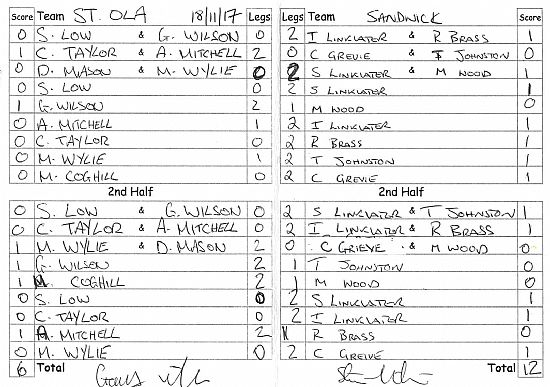 Score Team ST. OLA 18/11/17 Legs Legs Team SANDWICK Score
0 S. LOW & G. WILSON 0 2 I LINKLATER & R BRASS 1
1 C. TAYLOR & A. MITCHELL 2 0 C GREVIE & T JOHNSTON 0
0 D. MASON & M. WYLIE 0 2 S LINKLATER & M WOOD 1
0 S. LOW 0 2 S LINKLATER 1
1 G. WILSON 2 1 M WOOD 0
0 A. MITCHELL 1 2 I LINKLATER 1
0 C. TAYLOR 0 2 R BRASS 1
0 M. WYLIE 1 2 T JOHNSTON 1
0 M. COGHILL 0 2 C GREVIE 1
2nd Half 2nd Half
0 S. LOW & G. WILSON 0 2 S LINKLATER & T JOHNSTON 1
0 C. TAYLOR & A. MITCHELL 0 2 I LINKLATER & R BRASS 1
1 M. WYLIE & D. MASON 2 0 C GRIEVE & M WOOD 0
1 G. WILSON 2 1 T JOHNSTON 0
1 M. COGHILL 2 1 M WOOD 0
0 S. LOW 0 2 S LINKLATER 1
0 C. TAYLOR 0 2 I LINKLATER 1
1 A. MITCHELL 2 R BRASS 0
0 M. WYLIE 0 2 C GREVIE 1
6 Total Total 12